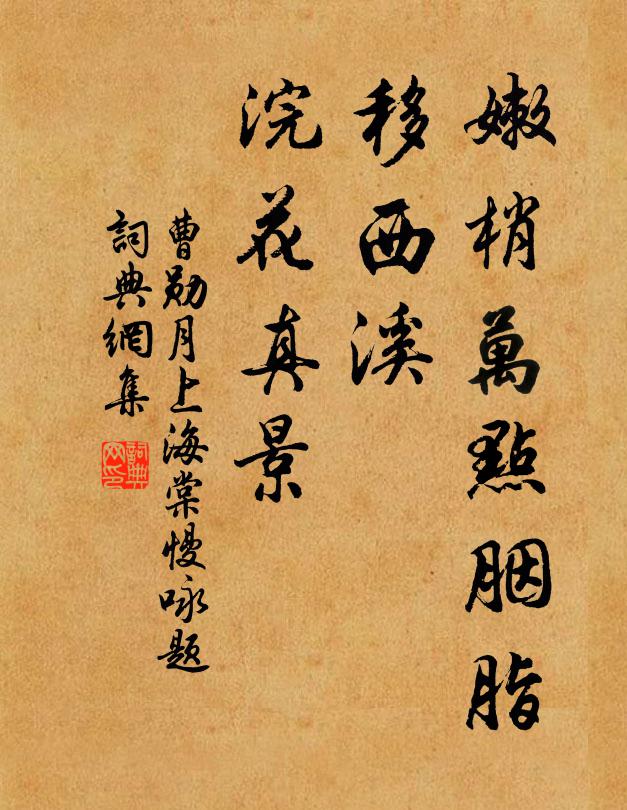 嫩梢萬點胭脂
移西溪
浣花真景
曹勛月上海棠慢咏题
詞典網集
詞典
网印